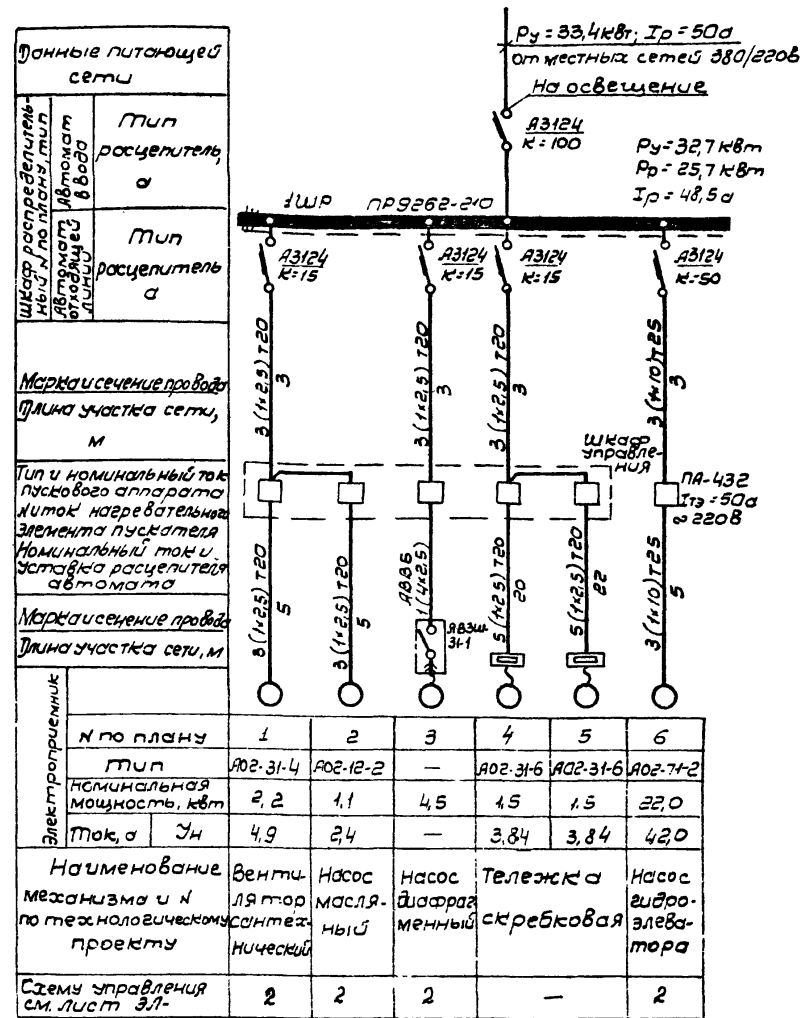 Данные питающей
сети
Pу=33,4квт; Iр=50а
от местных сетей 380/220в
На освещение
Шкаф распределитель-
ный № по плану, тип
Автомат
ввода
Тип
расцепитель,
а
А3124
К=100
Pу=32,7квт
Pр=25,7квт
Iр=48,5а
1ШР
ПР9262-210
Автомат
отходящей
линии
Тип
расцепитель
а
А3124
К=15
А3124
К=15
А3124
К=15
А3124
К=50
Марка и сечение провода
Длина участка сети,
м
3(1×2,5)Т20
3
3(1×2,5)Т20
3
3(1×2,5)Т20
3
3(1×10)Т25
3
Шкаф
управле-
ния
Тип и номинальный ток
пускового аппарата
и ток нагревательного
элемента пускателя
Номинальный ток и
уставка расцепителя
автомата
ПА-432
Iтэ=50а
~220в
Марка и сечение провода
Длина участка сети, м
8(1×2,5)Т20
5
3(1×2,5)Т20
5
АВВБ
1(4×2,5)
ЯВЗШ-
31-1
5(1×2,5)Т20
20
5(1×2,5)Т20
22
3(1×10)Т25
5
Электроприемник
№ по плану 1 2 3 4 5 6
Тип АО2-31-4 АО2-12-2 — АО2-31-6 АО2-31-6 АО2-71-2
Номинальная
мощность, квт 2,2 1,1 4,5 1,5 1,5 22,0
Ток, а Ун 4,9 2,4 — 3,84 3,84 42,0
Наименование
механизма и №
по технологическому
проекту
Венти-
лятор
сантех-
нический
Насос
масля-
ный
Насос
диафраг
менный
Тележка
скребковая
Насос
гидро-
элева-
тора
Схему управления
см. лист ЭЛ- 2 2 2 — 2